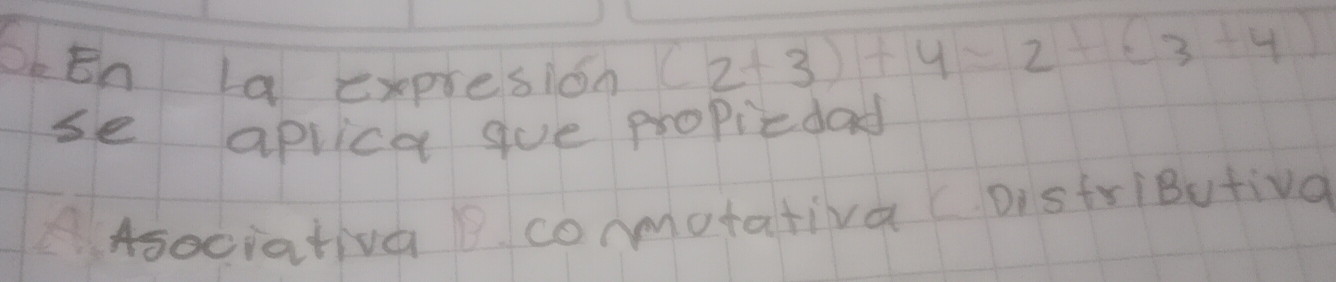 6. En la expresión (2+3)+4=2+(3+4)
se aplica que propiedad
A. Asociativa B. conmotativa C. DistriButiva